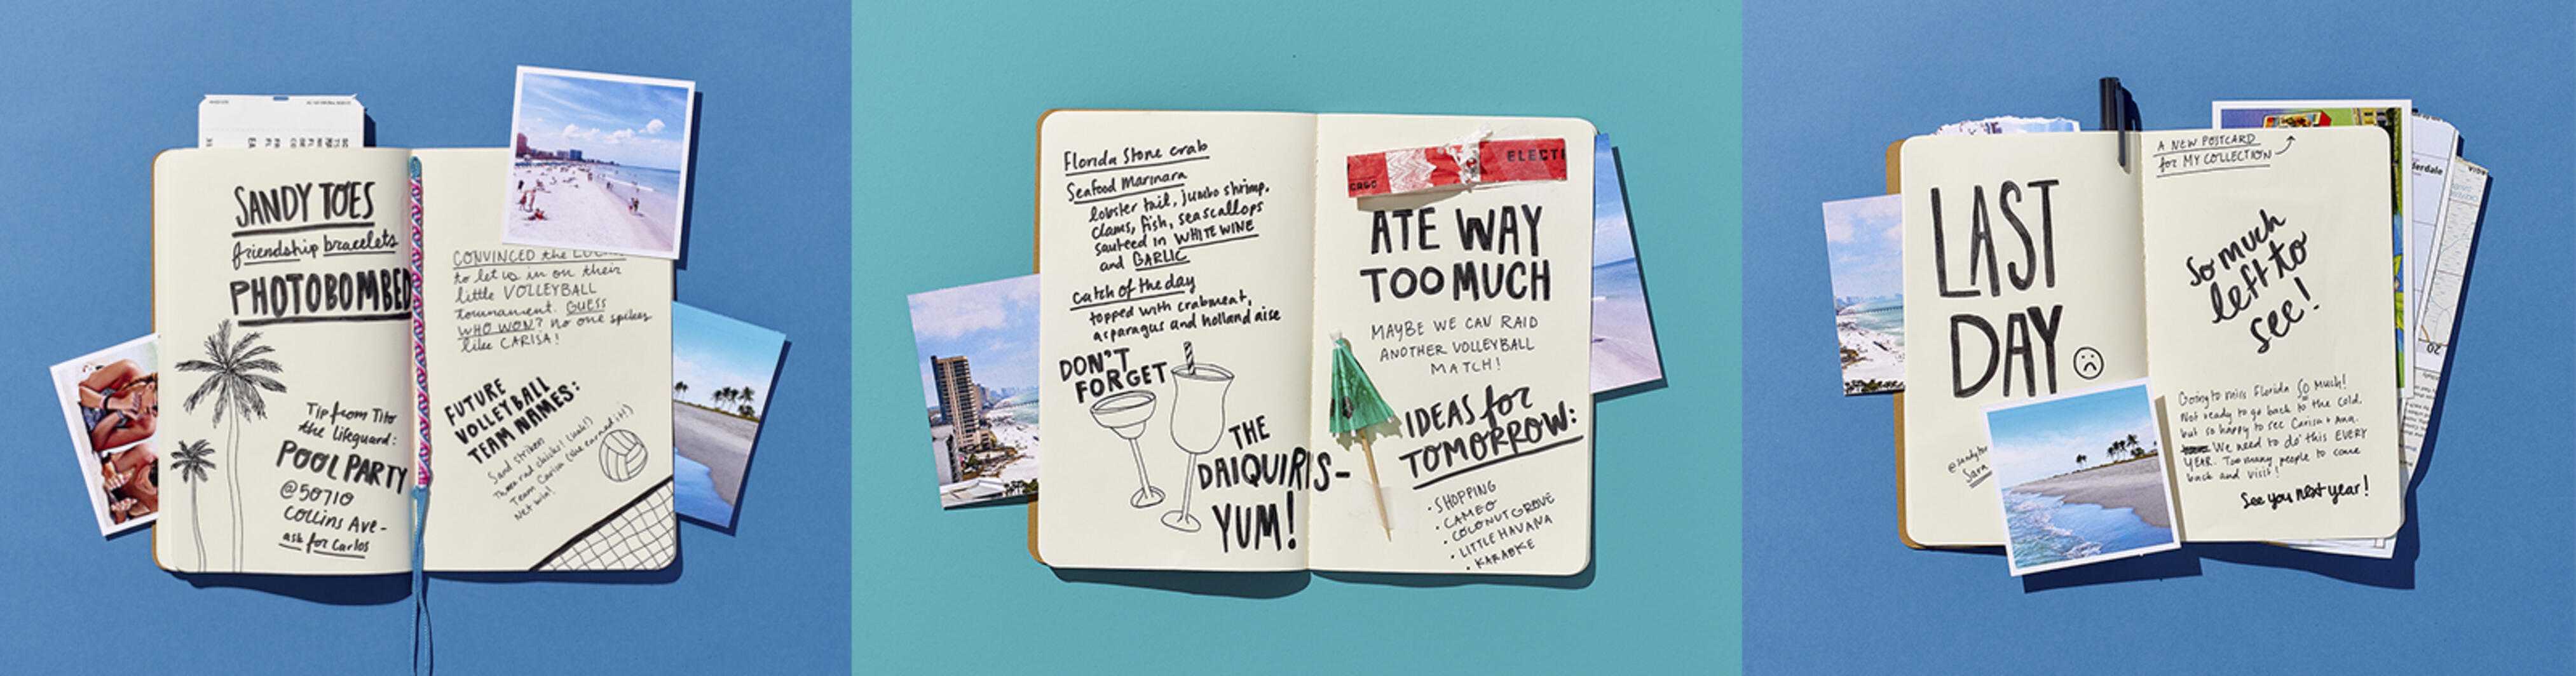 SANDY TOES
friendship bracelets
PHOTOBOMBED
Tip from Tito
the lifeguard:
POOL PARTY
@50710
Collins Ave-
ask for Carlos
CONVINCED the
to let us in on their
little VOLLEYBALL
tournament. GUESS
WHO WON? no one spikes
like CARISA!
FUTURE
VOLLEYBALL
TEAM NAMES:
Sand strikers
Three rad chicks! (duh!)
Team Carisa (she earned it!)
Net win!
Florida Stone crab
Seafood Marinara
lobster tail, jumbo shrimp,
clams, fish, sea scallops
sauteed in WHITE WINE
and GARLIC
catch of the day
topped with crabmeat,
asparagus and hollandaise
DON'T
FORGET
THE
DAIQUIRIS-
YUM!
ELECTI
ATE WAY
TOO MUCH
MAYBE WE CAN RAID
ANOTHER VOLLEYBALL
MATCH!
IDEAS for
TOMORROW:
• SHOPPING
• CAMEO
• COCONUT GROVE
• LITTLE HAVANA
• KARAOKE
LAST
DAY
Sara
A NEW POSTCARD
for MY COLLECTION
So much
left to
see!
Going to miss Florida SO Much!
Not ready to go back to the cold,
but so happy to see Carisa + Ana.
We need to do this EVERY
YEAR. Too many people to come
back and visit!
See you next year!
erdale